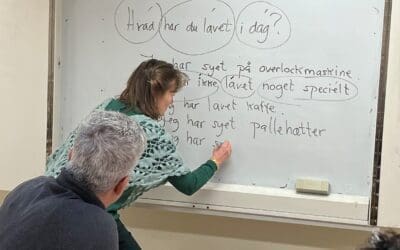 Hvad har du lavet i dag?
Jeg har syet på overlockmaskine.
har ikke lavet noget specielt
har lavet kaffe.
Jeg har syet pallehætter
har